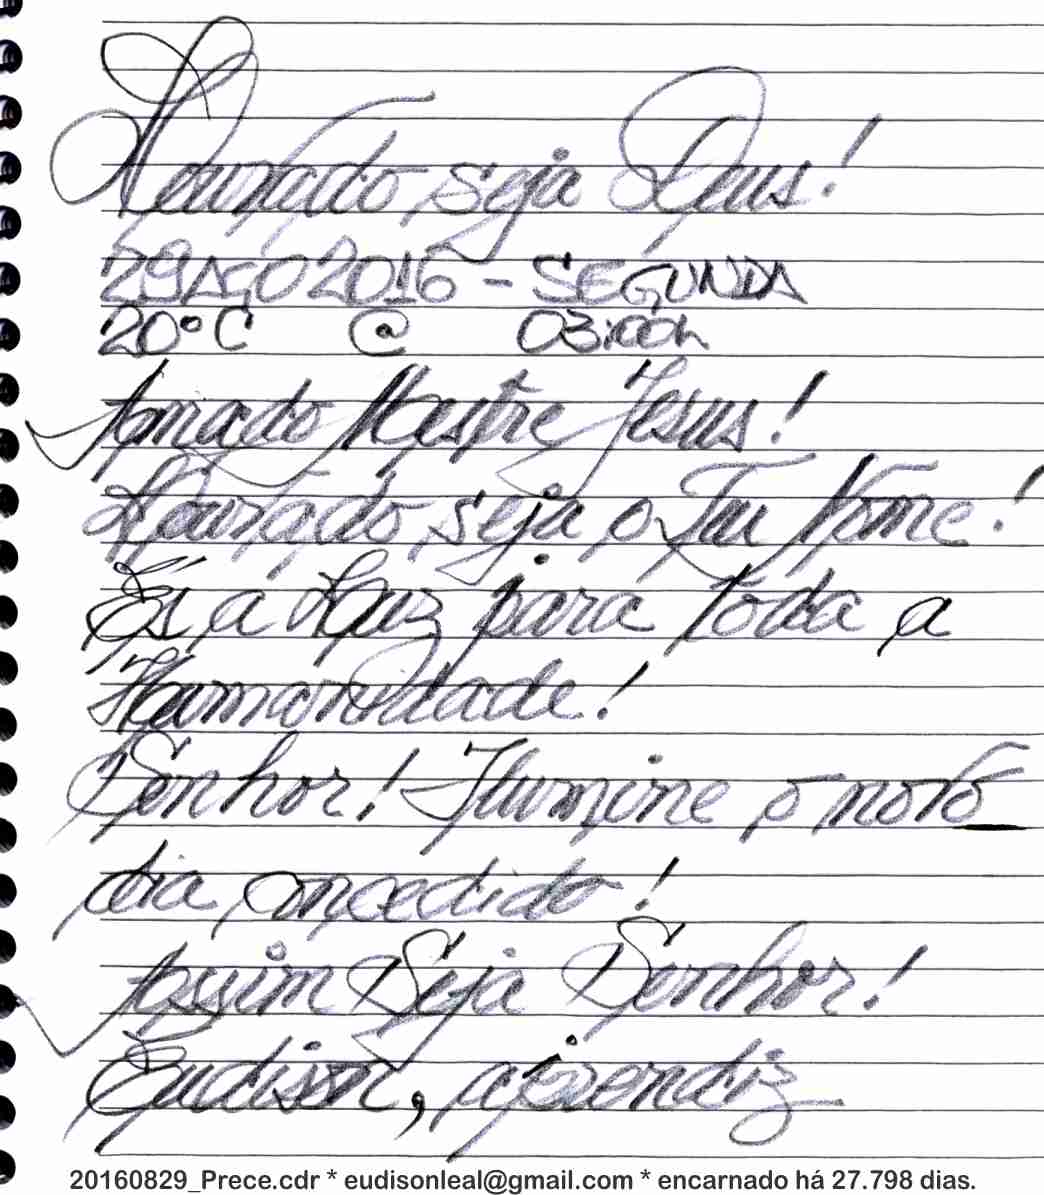 Louvado seja Deus!
29AGO2016 - SEGUNDA
20°C @ 03:00h
Amado Mestre Jesus!
Louvado seja o Teu Nome!
És a Luz para toda a
Humanidade!
Senhor! Ilumine o novo
dia concedido!
Assim Seja Senhor!
Eudison, aprendiz
20160829_Prece.cdr * eudisonleal@gmail.com * encarnado há 27.798 dias.